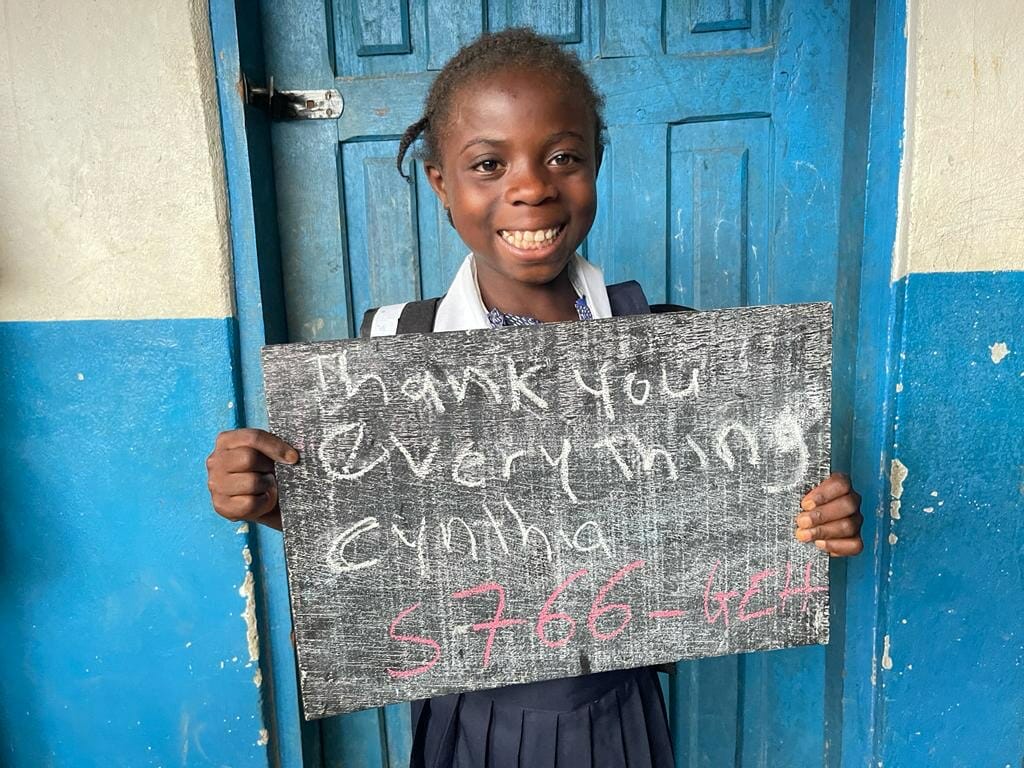 Thank you
everything
cynthia
S766-GEH